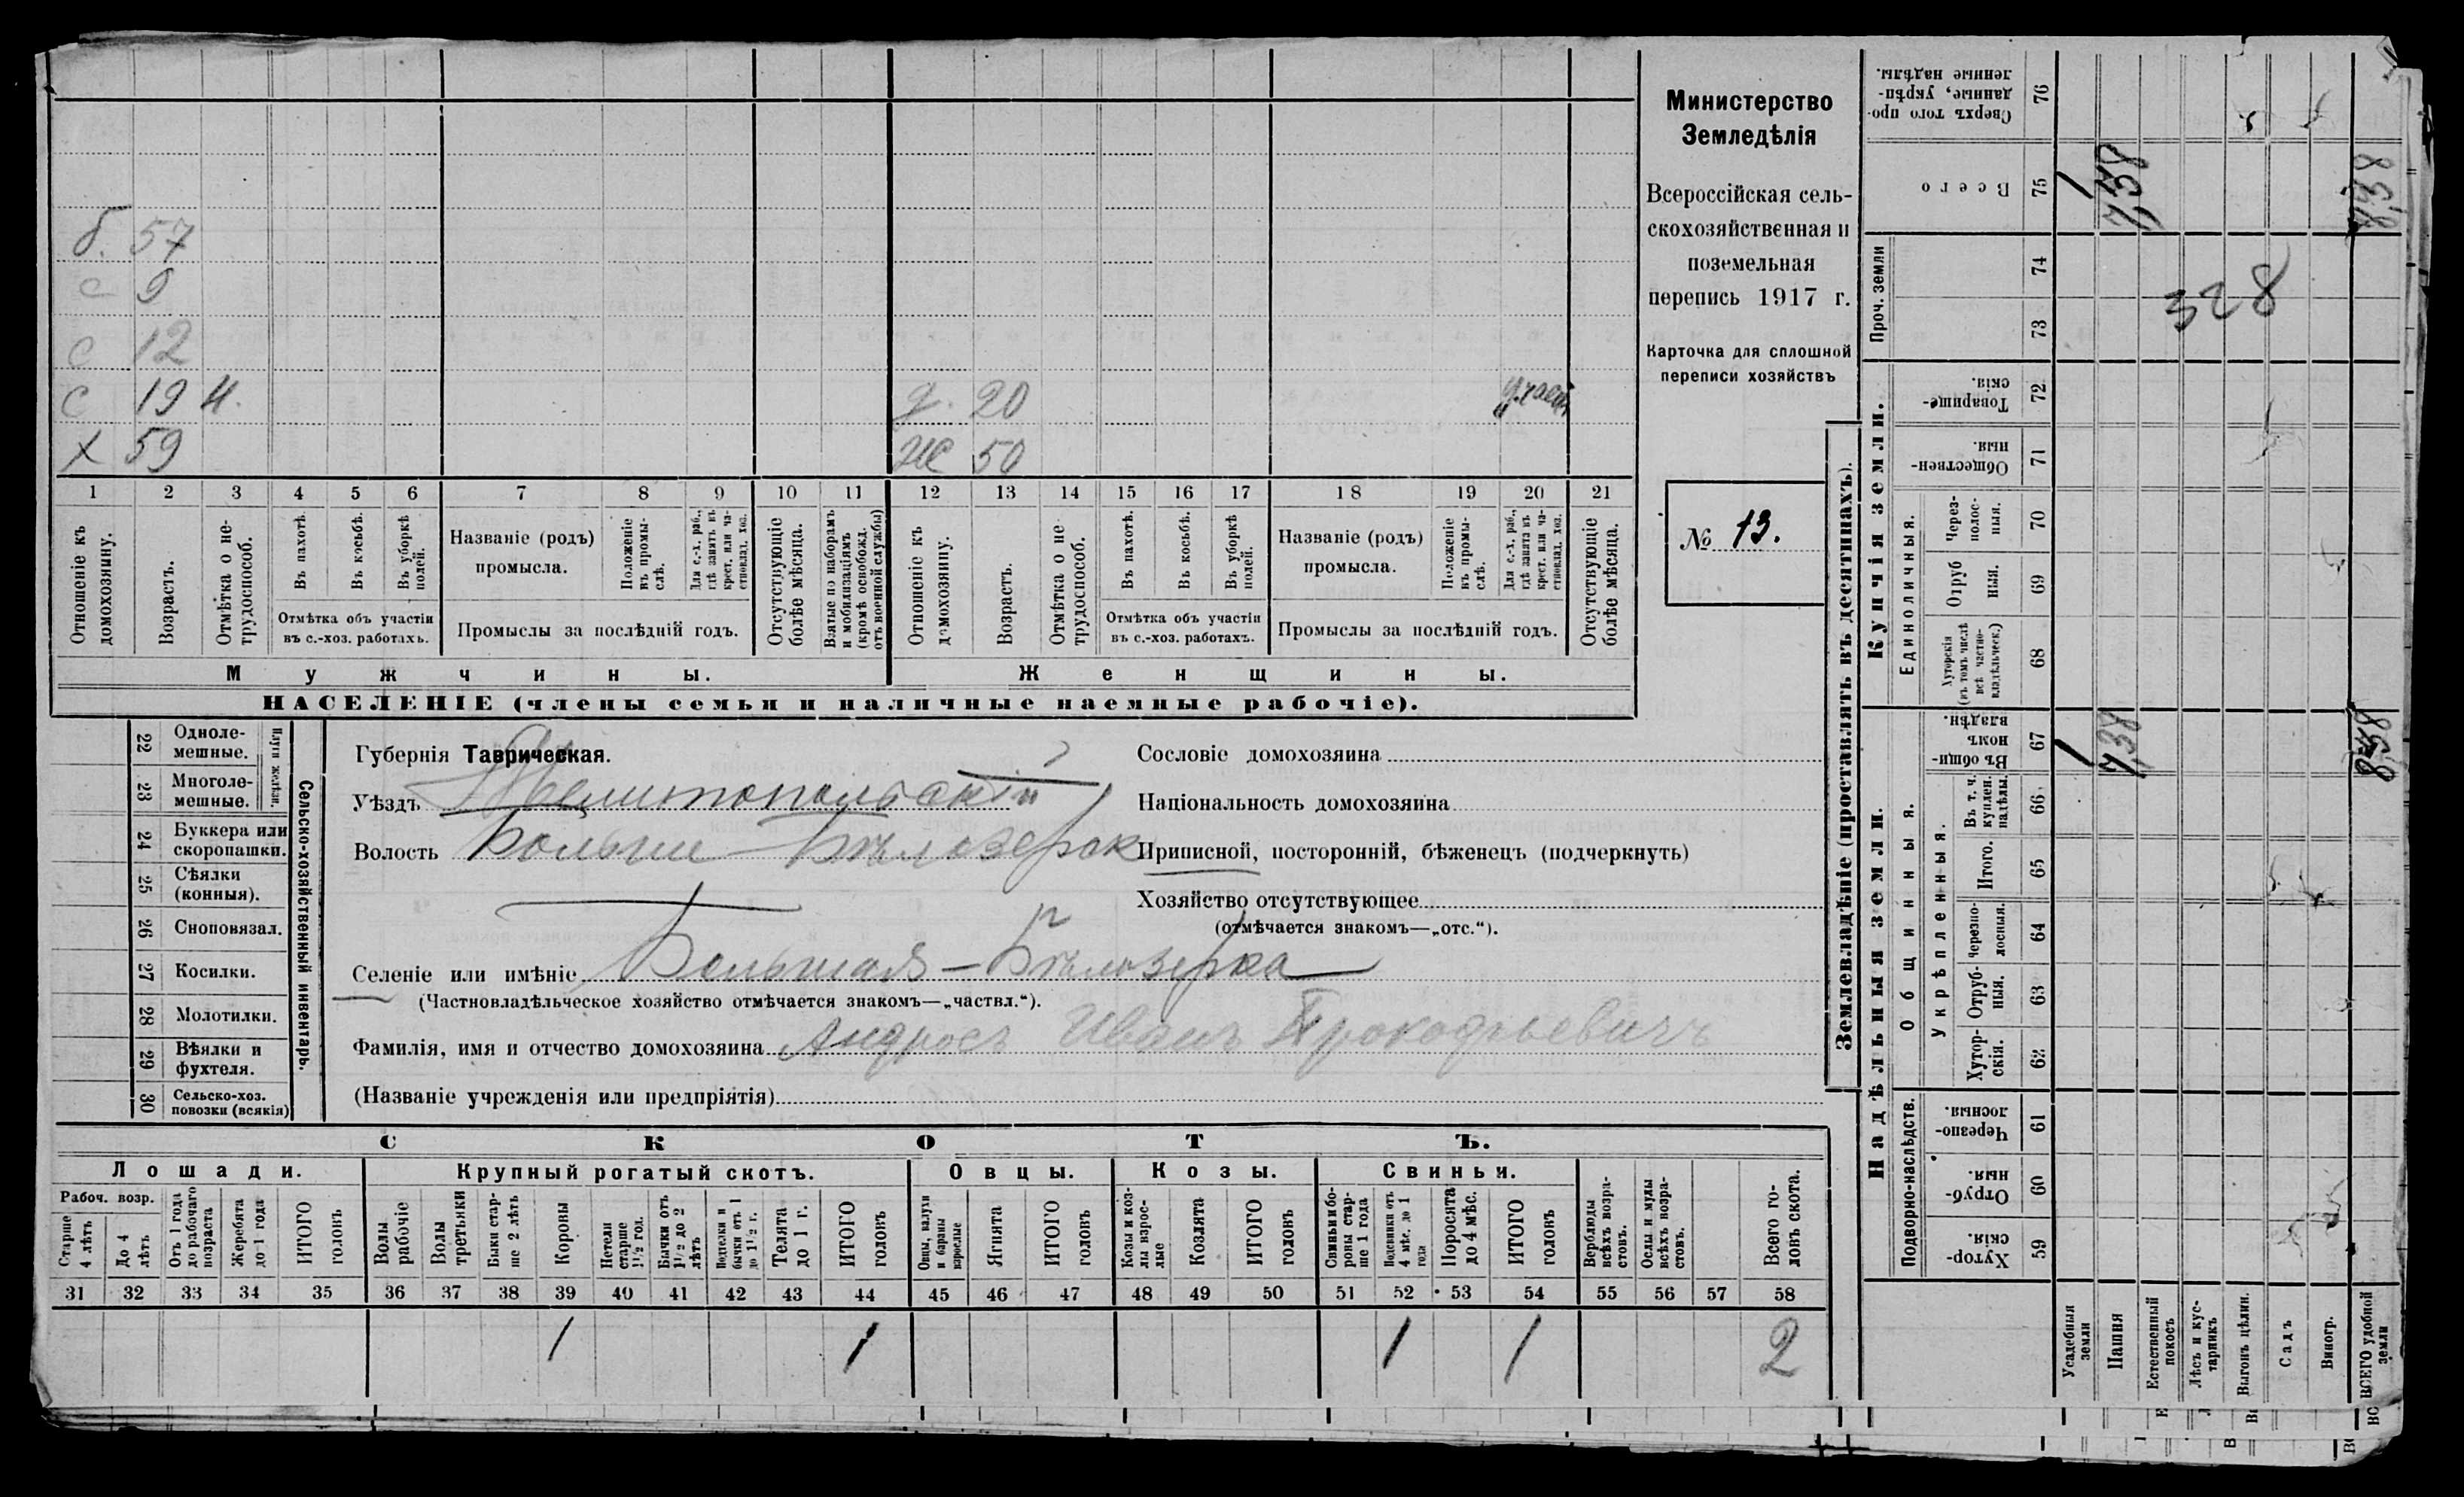 б. 57
с 9
с 12
с 19 ч. д. 20
х 59 ж 50
1 2 3 4 5 6 7 8 9 10 11 12 13 14 15 16 17 18 19 20 21
Отношеніе къ домохозяину.
Возрастъ.
Отмѣтка о нетрудоспособ.
Въ пахотѣ.
Въ косьбѣ.
Въ уборкѣ полей.
Отмѣтка объ участіи
въ с.-хоз. работахъ.
Названіе (родъ)
промысла.
Положеніе въ промыслѣ.
Для с.-х. раб., гдѣ занятъ въ крест. или частновлад. хоз.
Промыслы за послѣдній годъ.
Отсутствующіе болѣе мѣсяца.
Взятые по наборамъ и мобилизаціямъ (кромѣ освобожд. отъ военной службы)
Отношеніе къ домохозяину.
Возрастъ.
Отмѣтка о нетрудоспособ.
Въ пахотѣ.
Въ косьбѣ.
Въ уборкѣ полей.
Отмѣтка объ участіи
въ с.-хоз. работахъ.
Названіе (родъ)
промысла.
Положеніе въ промыслѣ.
Для с.-х. раб., гдѣ занята въ крест. или частновлад. хоз.
Промыслы за послѣдній годъ.
Отсутствующіе болѣе мѣсяца.
Мужчины. Женщины.
НАСЕЛЕНІЕ (члены семьи и наличные наемные рабочіе).
Министерство
Земледѣлія
Всероссійская сель-
скохозяйственная и
поземельная
перепись 1917 г.
Карточка для сплошной
переписи хозяйствъ
№ 13.
Сельско-хозяйственный инвентарь.
Плуги желѣзн.
22 Одноле-
мешные.
23 Многоле-
мешные.
24 Буккера или
скоропашки.
25 Сѣялки
(конныя).
26 Сноповязал.
27 Косилки.
28 Молотилки.
29 Вѣялки и
фухтеля.
30 Сельско-хоз.
повозки (всякія)
Губернія Таврическая.
Уѣздъ Мелитопольскій
Волость Больше-Бѣлозерок
Селеніе или имѣніе Большая-Бѣлозерка
(Частновладѣльческое хозяйство отмѣчается знакомъ—„частвл.“).
Фамилія, имя и отчество домохозяина Андросъ Иванъ Прокофьевичъ
(Названіе учрежденія или предпріятія)
Сословіе домохозяина
Національность домохозяина
Приписной, посторонній, бѣженецъ (подчеркнуть)
Хозяйство отсутствующее
(отмѣчается знакомъ—„отс.“).
СКОТЪ.
Лошади. Крупный рогатый скотъ. Овцы. Козы. Свиньи.
Рабоч. возр.
Старше 4 лѣтъ
До 4 лѣтъ
Отъ 1 года до рабочаго возраста
Жеребята до 1 года
ИТОГО головъ
Волы рабочіе
Волы третьяки
Быки старше 2 лѣтъ
Коровы
Нетели старше 1½ год.
Бычки отъ 1½ до 2 лѣтъ
Подтелки и бычки отъ 1 до 1½ г.
Телята до 1 г.
ИТОГО головъ
Овцы, валухи и бараны взрослые
Ягнята
ИТОГО головъ
Козы и козлы взрослые
Козлята
ИТОГО головъ
Свиньи и боровы старше 1 года
Подсвинки отъ 4 мѣс. до 1 года
Поросята до 4 мѣс.
ИТОГО головъ
Верблюды всѣхъ возрастовъ.
Ослы и мулы всѣхъ возрастовъ.
Всего головъ скота.
31 32 33 34 35 36 37 38 39 40 41 42 43 44 45 46 47 48 49 50 51 52 53 54 55 56 57 58
1 1 1 1 2
Землевладѣніе (проставлять въ десятинахъ).
Надѣльныя земли. Купчія земли.
Подворно-наслѣдств.
Общинныя.
Укрѣпленныя.
Единоличныя.
Проч. земли
Хутор-
скія. 59
Отруб-
ныя. 60
Черезпо-
лосныя. 61
Хутор-
скія. 62
Отруб-
ныя. 63
черезпо-
лосныя. 64
Итого. 65
Въ т. ч. куплен. надѣлы. 66
Въ общи-
номъ владѣн. 67
Хуторскія (въ томъ числѣ всѣ частно-владѣльческ.) 68
Отруб
ныя. 69
Через-
полос-
ныя. 70
Обществен-
ныя. 71
Товарище-
скія. 72
73
74
Всего 75
Сверхъ того про-
данные, укрѣп-
ленные надѣлы. 76
328
Усадебныя земли
Пашня
Естественный покосъ
Лѣсъ и кустарникъ
Выгонъ цѣлин.
Садъ
Виногр.
ВСЕГО удобной земли